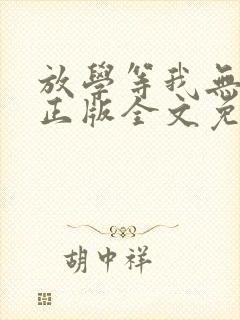 放學等我無
正版全文免
胡中祥